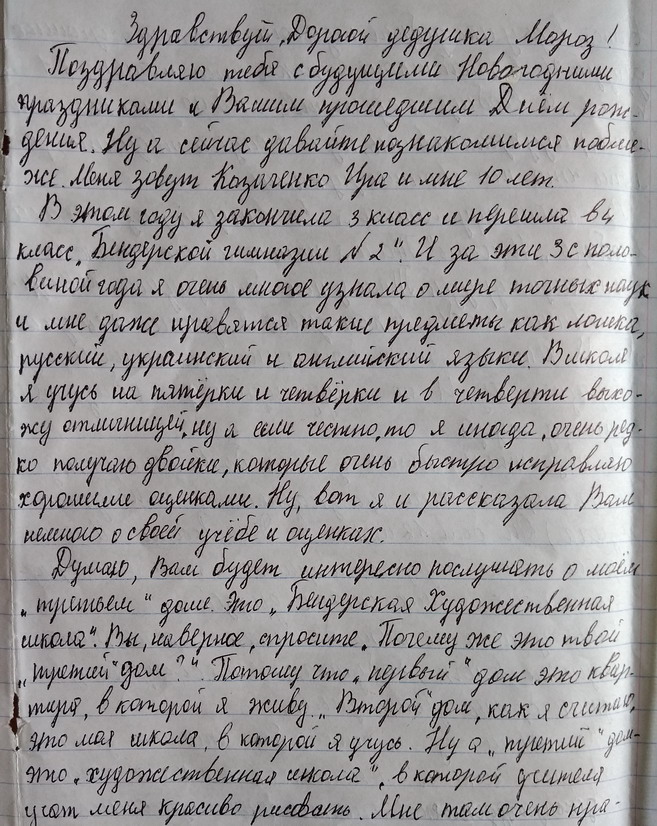 Здравствуй, Дорогой дедушка Мороз!
Поздравляю тебя с будущими Новогодними
праздниками и Вашим прошедшим Днём рож-
дения. Ну а сейчас давайте познакомимся побли-
же. Меня зовут Казаченко Ира и мне 10 лет.
В этом году я закончила 3 класс и перешла в 4
класс „Бендерской гимназии №2". И за эти 3 с поло-
виной года я очень многое узнала о мире точных наук
и мне даже нравятся такие предметы как логика,
русский, украинский и английский языки. В школе
я учусь на пятёрки и четвёрки и в четверти выхо-
жу отличницей, ну а если честно, то я иногда, очень ред-
ко получаю двойки, которые очень быстро исправляю
хорошими оценками. Ну, вот я и рассказала Вам
немного о своей учёбе и оценках.
Думаю, Вам будет интересно послушать о моём
„третьем" доме. Это „Бендерская Художественная
школа". Вы, наверное, спросите „Почему же это твой
„третий" дом?". Потому что „первый" дом это квар-
тира, в которой я живу. „Второй" дом, как я считаю,
это моя школа, в которой я учусь. Ну а „третий" дом-
это „художественная школа", в которой учителя
учат меня красиво рисовать. Мне там очень нра-